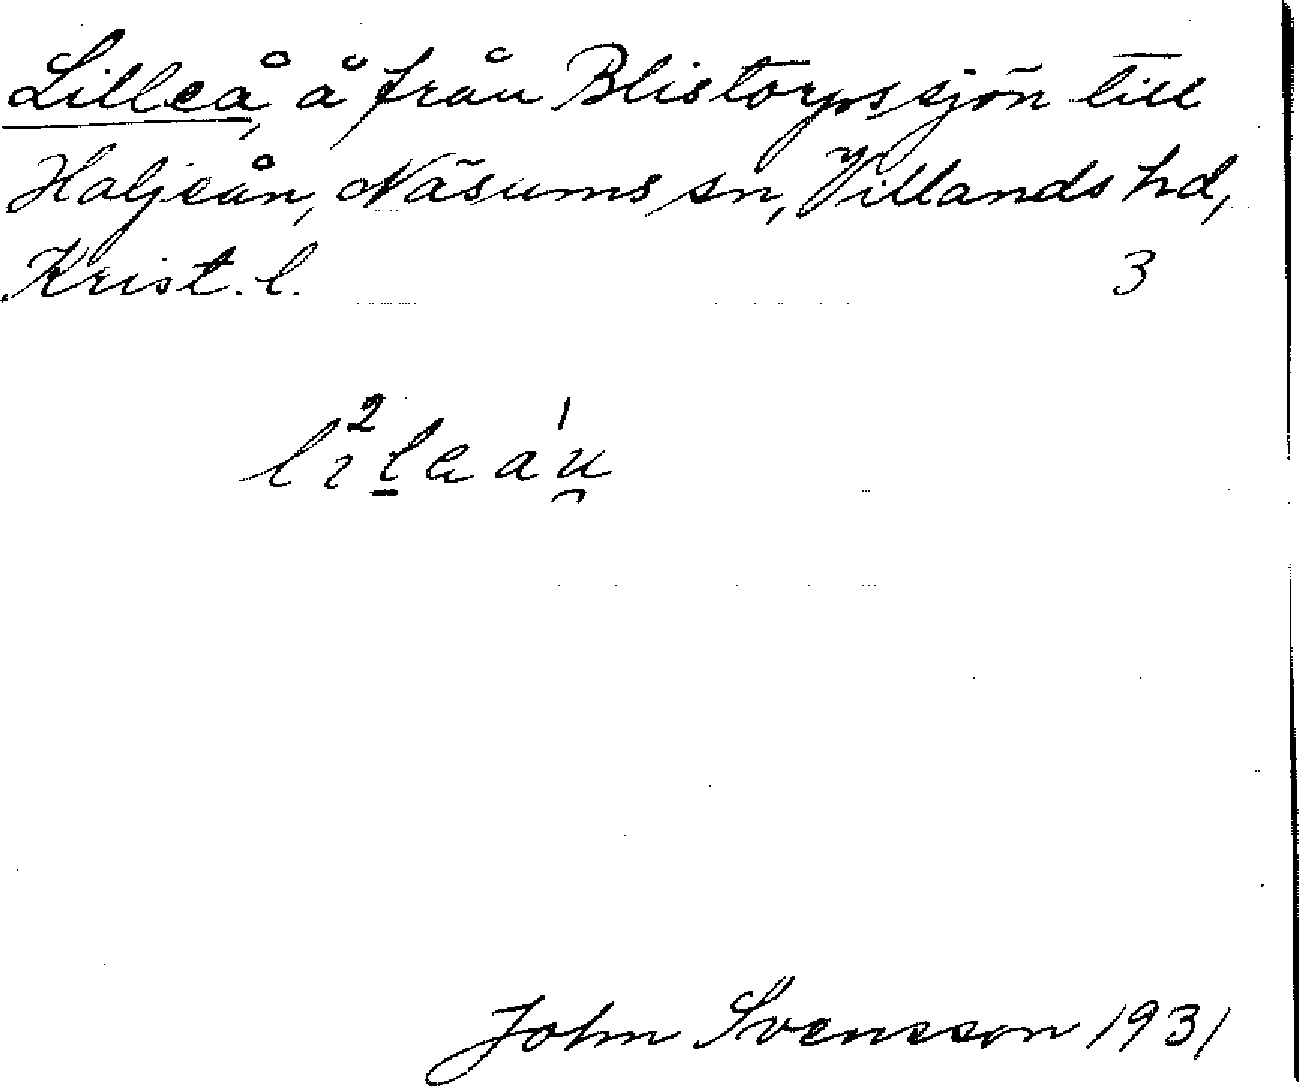 Lilleå, å från Blistorpssjön till
Haljeån, Näsums sn, Villands hd,
Krist. l. 3
John Svensson 1931